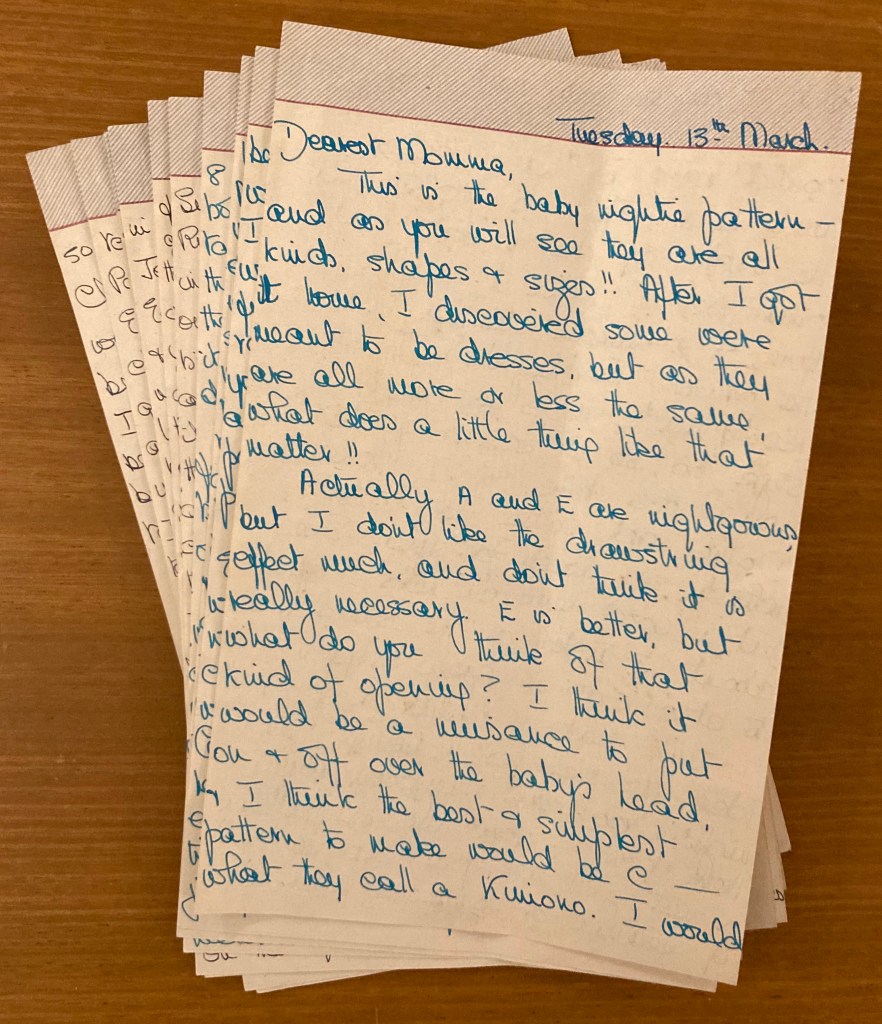 Tuesday. 13th March.
Dearest Momma,
This is the baby nightie pattern –
and as you will see they are all
kinds, shapes & sizes!! After I got
it home, I discovered some were
meant to be dresses, but as they
are all more or less the same,
what does a little thing like that
matter!!
Actually A and E are nightgowns,
but I don't like the drawstring
effect much, and don't think it is
really necessary. E is better, but
what do you think of that
kind of opening? I think it
would be a nuisance to put
on & off over the baby's head.
I think the best & simplest
pattern to make would be C —
what they call a Kimono. I would